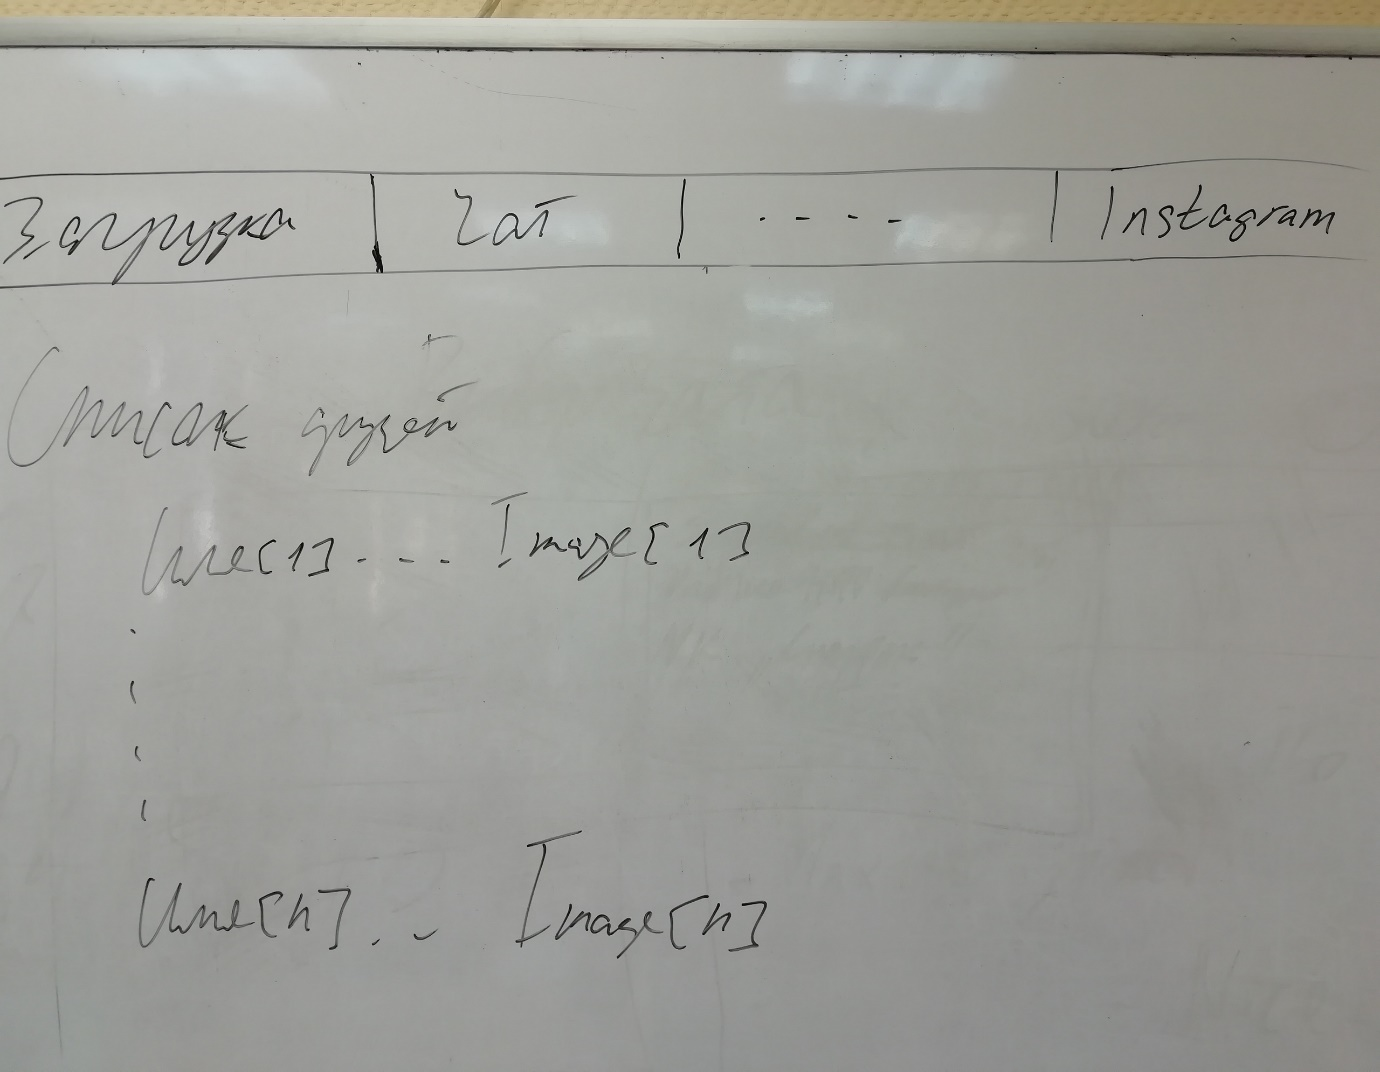 Загрузка | Чат | - - - - | Instagram
Список друзей
Имя[1] - - - Image[1]
Имя[n] . - Image[n]